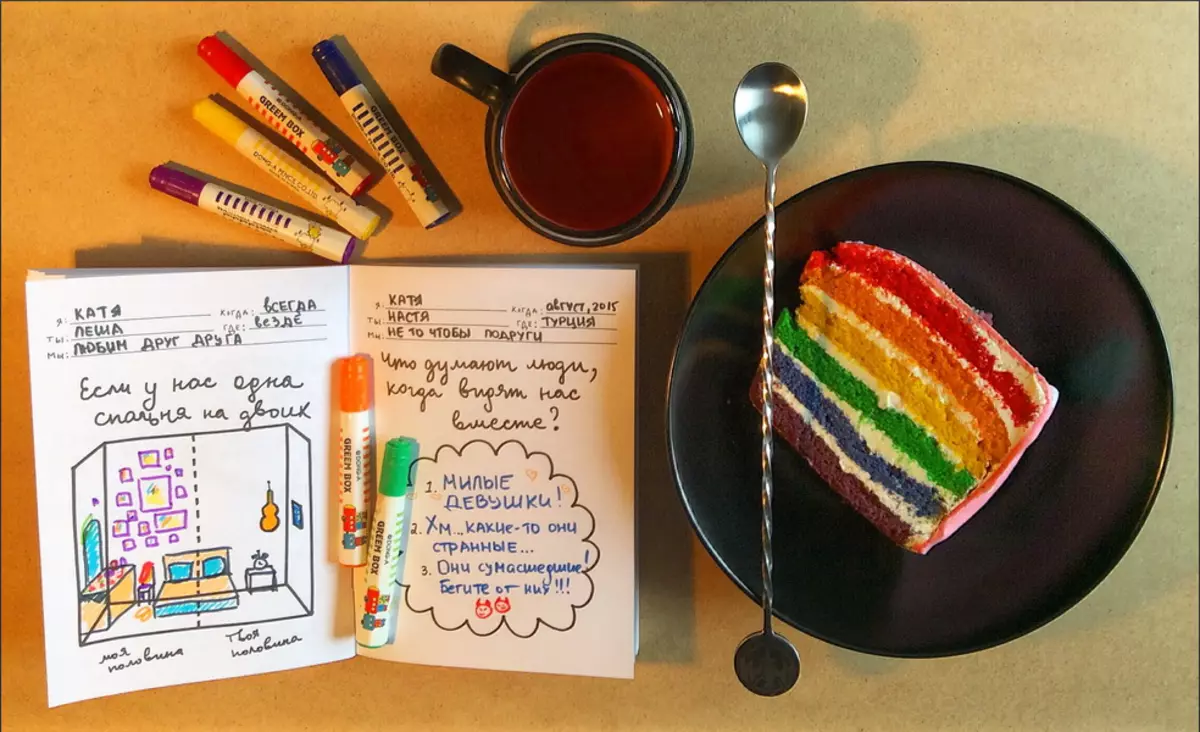 GREEM BOX
GREEM BOX
DONG-A
Я: КАТЯ КОГДА: ВСЕГДА
ТЫ: ЛЕША ГДЕ: ВЕЗДЕ
МЫ: ЛЮБИМ ДРУГ ДРУГА
Если у нас одна
спальня на двоих
моя
половина
твоя
половина
Я: КАТЯ КОГДА: АВГУСТ, 2015
ТЫ: НАСТЯ ГДЕ: ТУРЦИЯ
МЫ: НЕ ТО ЧТОБЫ ПОДРУГИ
Что думают люди,
когда видят нас
вместе?
1. МИЛЫЕ
ДЕВУШКИ!
2. ХМ... КАКИЕ-ТО ОНИ
СТРАННЫЕ...
3. ОНИ СУМАСШЕДШИЕ!
БЕГИТЕ ОТ НИХ!!!
GREEM BOX
DONG-A
GREEM BOX